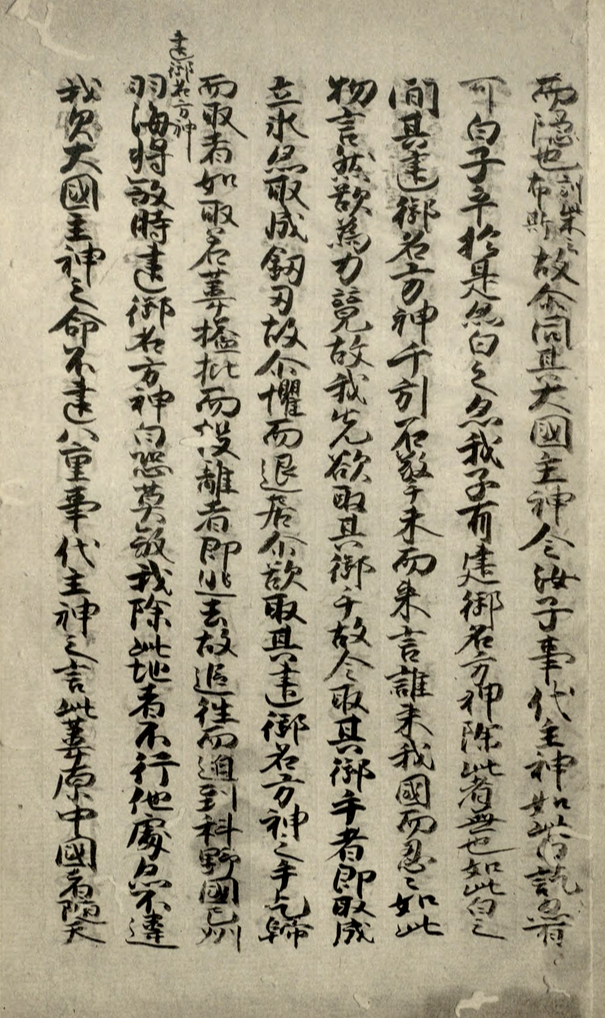 而隠也訓柴云布斯故尓問其大國主神今汝子事代主神如此白訖亦有
可白子乎於是亦白之亦我子有建御名方神除此者無也如此白之
間其建御名方神千引石敬手末而来言誰来我國而忍〻如此
物言然欲為力競故我先欲取其御手故令取其御手者即取成
立氷亦取成釼刃故尓懼而退居尓欲取其建御名方神之手乞歸
而取者如取若葦搤批而投離者即逃去故追往而迫到科野國之州
建御名方神
羽海将殺時建御名方神白恐莫殺我除此地者不行他處亦不違
我父大國主神之命不違八重事代主神之言此葦原中國者随天